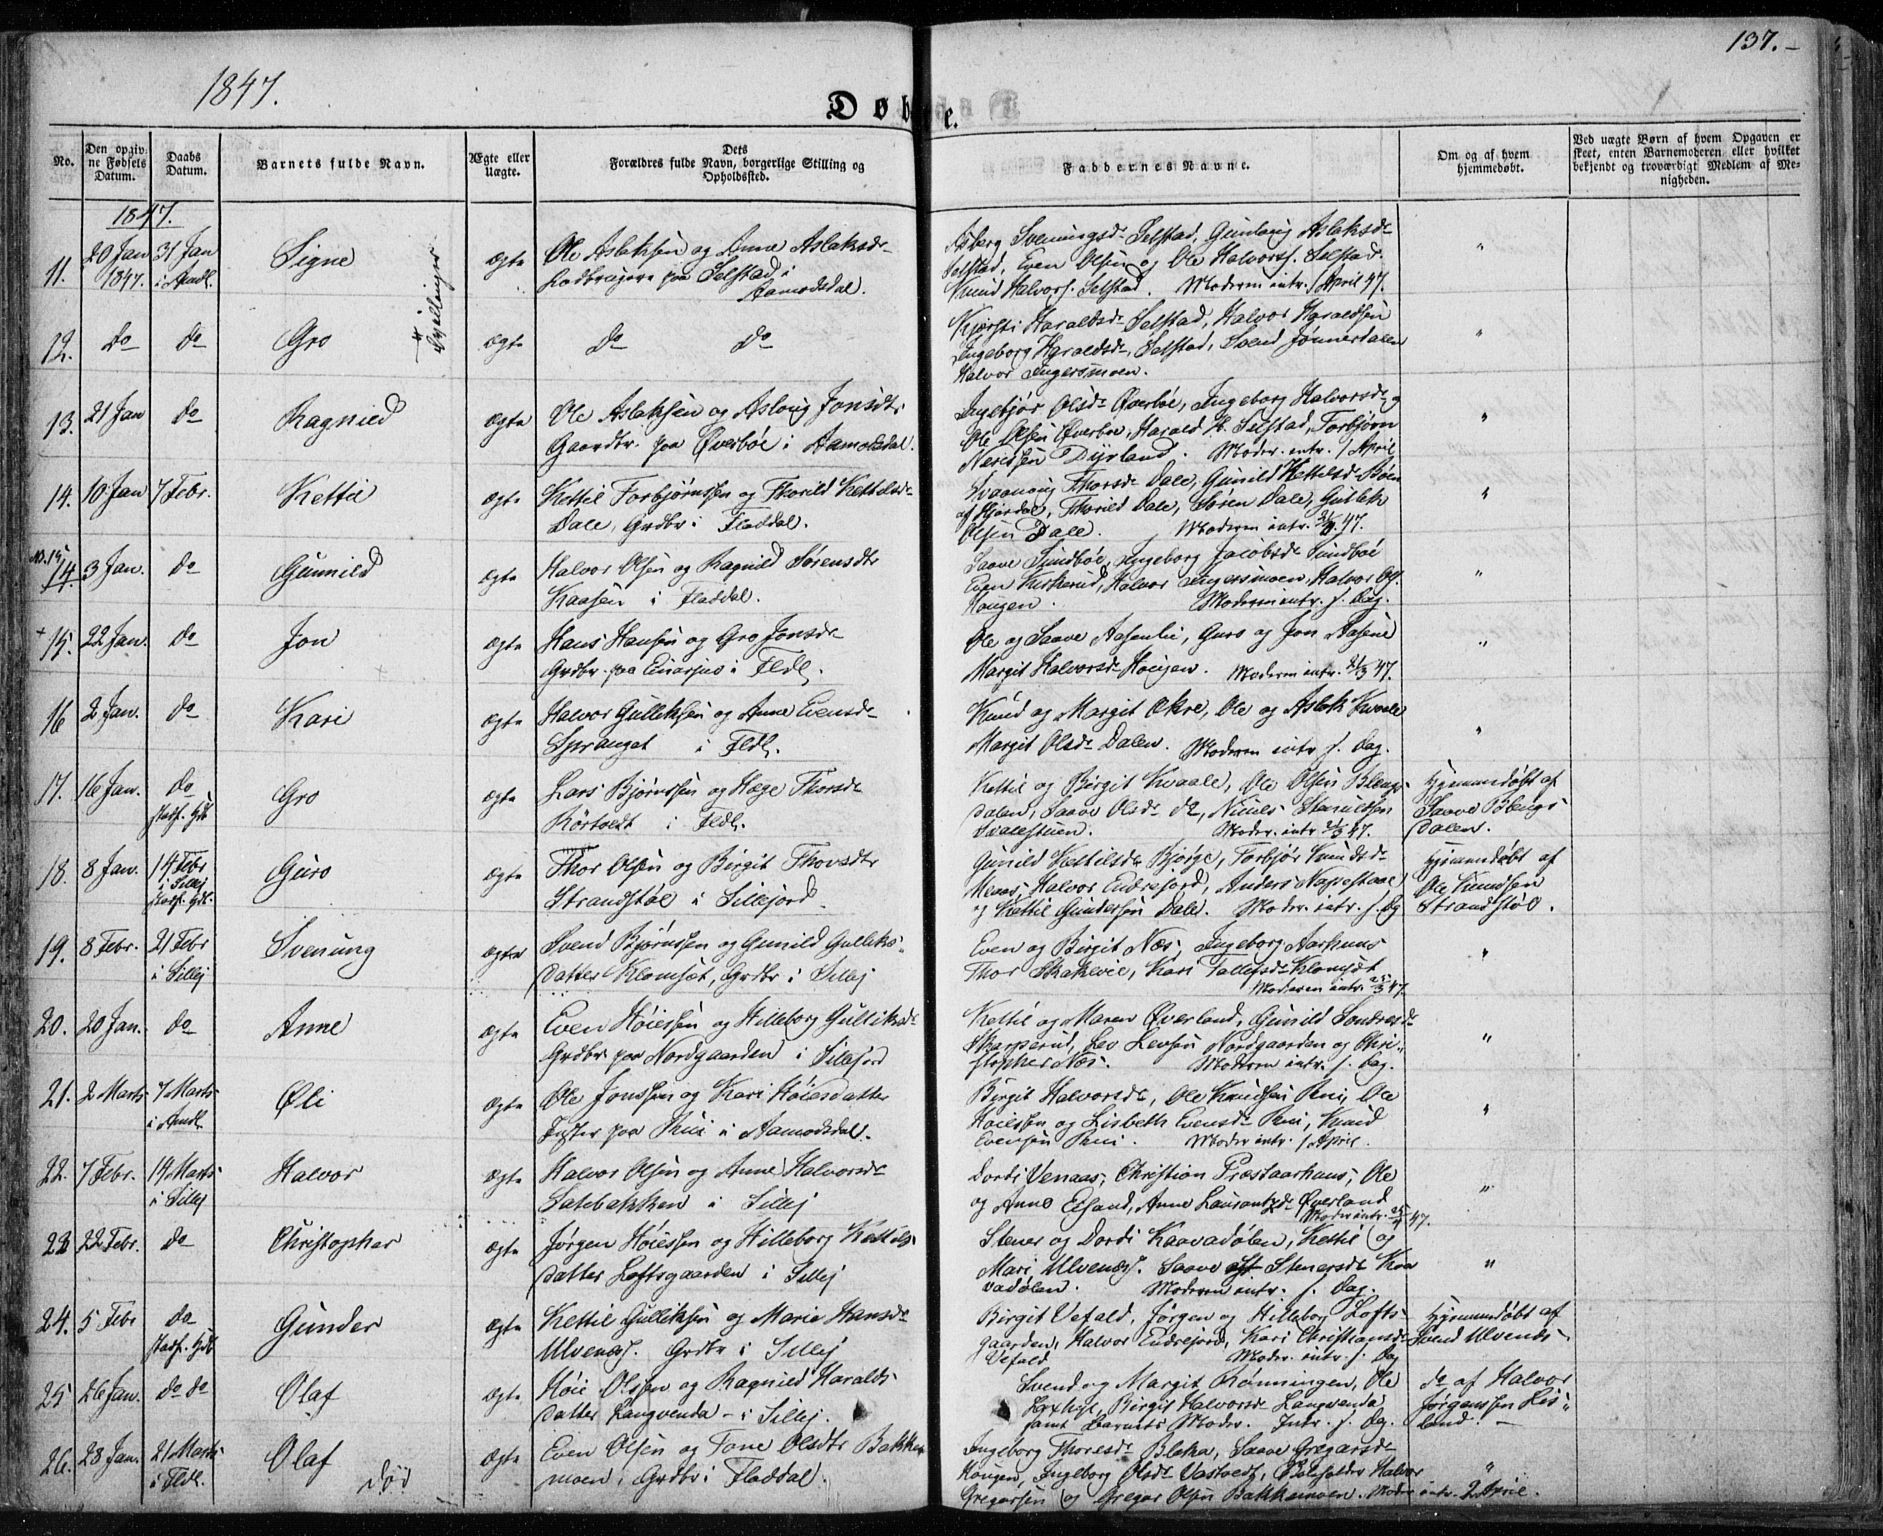 1847.
137.
Døbte.
No.
Den opgivne Fødsels Datum.
Daabs Datum.
Barnets fulde Navn.
Ægte eller Uægte.
Dets Forældres fulde Navn, borgerlige Stilling og Opholdssted.
Faddernes Navne.
Om og af hvem hjemmedøbt.
Ved uægte Børn af hvem Opgaven er skeet, enten Barnemoderen eller hvilket bekjendt og troværdigt Medlem af Menigheden.
1847.
11. 20 Jan 1847. 31 Jan i Amdl. Signe Tvillinger ægte
Ole Aslaksen og Anne Aslaksdr
paa Selstad i
Aamodsdal.
Asberg Sveinungsdr Selstad, Gunlaug Aslaksdr
Selstad, Even Olsen og Ole Halvors. Selstad.
Knud Halvors. Selstad. Moderen intr. 1 April 47.
12. do do Gro ægte do do
Kjersti Haraldsdr Selstad, Halvor Haraldsen
Ingeborg Haraldsdr Selstad, Svend Jønnerdalen
Halvor Ingersmoen.
13. 21 Jan do Ragnild ægte
Ole Aslaksen og Aslaug Jonsdtr
Gaardbr. paa Øverbøe i Aamodsdal.
Ingebjør Olsdr Øverbøe, Ingeborg Halvorsdr og
Ole Olsen Øverbøe, Harald H. Selstad, Torbjørn
Nerisen Dyrland. Moder. intr. 1 April
14. 10 Jan 7 Febr. Kettil ægte
Kettil Torbjørnsen og Thorild Kettilsdr
Dale, Grdbr i Fladdal.
Thorsdr Dale, Gunild Kettilsdr Bøen
af Hjerdal, Thorild Dale, Søren Dale, Gullik
Olsen Dale. Moderen intr. 47.
No. 15 14. 3 Jan. do Gunnild ægte
Halvor Olsen og Ragnild Sørensdtr
Kaasen i Fladdal.
Saave Sundbøe, Ingeborg Jacobsdr Sundbøe
Even Kirkerud, Halvor Ingersmoen, Halvor Ols.
Haugen. Moderen intr. s. Dag.
+ 15. 22 Jan. do Jon ægte
Hans Hansen og Gro Jonsdr
Grdbr. paa i Fldl.
Ole og Saave Aasenlie, Guro og Jon Aasene
Margit Halvorsdr Hougen. Moderen intr. 21/3 47.
16 2 Jan. do Kari ægte
Halvor Gulliksen og Anne Evensdr
Spranget i Fldl.
Knud og Margit Økre, Ole og Aslak Kvaale
Margit Olsdr Dalen. Moderen intr s. Dag.
17. 16 Jan. do stadf. Gdt Gro ægte
Lars Bjørnsen og Hæge Thorsdr
Kortvedt i Fldl.
Kettil og Birgit Kvaale, Ole Olsen Blengs-
dalen, Saave Olsdr do, Stenulsen
Svalestuen. Moder. intr 21/3 47.
Hjemmedøbt af
Saave Blengs-
dalen.
18. 8 Jan. 14 Febr i Sillej stadf. Gdt. Guro ægte
Thor Olsen og Birgit Thorsdtr
Strandstøl i Sillejord.
Gunild Kettilsdr Bjørge, Torbjør Knudsdr
Moen, Halvor Eidrefjord, Anders Napestaae
og Kettil Gundersen Dale. Moder. intr. s. Dg
Hjemmedøbt af
Ole Knudsen
Strandstøl.
19. 8 Febr. 21 Febr i Sillej Svenung ægte
Svend Bjørnsen og Gunild Gulliks-
datter Klomset, Grdbr i Sillej
Even og Birgit Næs, Ingeborg Aarhuus
Thor Skakelie, Kari Tallefsdr Klomset
Moderen intr. 25/3 47.
20. 20 Jan. do Anne ægte
Even Høiessen og Hilleborg Gulliksdr
Grdbr paa Nordgaarden i Sillejord
Kettil og Maren Øverland, Gunild Sondresdr
Skarperud, Lev Levsen Nordgaarden og Chri-
stopher Næs. Moderen intr. s. Dag.
21. 2 Marts 7 Marts i Amdl Øli ægte
Ole Jonssen og Kari Høiesdatter
paa Rui i Aamodsdal.
Birgit Halvorsdr, Ole Knudsen Rui, Ole
Høiessen og Lisbeth Evensdr Rui, Knud
Evensen Rui. Moder intr. 1 April.
22. 7 Febr. 14 Marts i Sillej Halvor ægte
Halvor Olsen og Anne Halvorsdr
Latebakken i Sillej
Dordi Venaas, Christian Præstaarhuus, Ole
og Anne Eisand, Anne Laurantzdr Øverland
Moder intr. 47.
23 22 Febr. do Christopher ægte
Jørgen Høiessen og Hilleborg Kettils-
datter Loftsgaarden i Sillej
Stener og Dordi Kaavadølen, Kettil og
Mari Ulvenæs. Saave Stenersdr Kaa
vadølen. Moderen intr. s. Dag.
24. 5 Febr do stadf. Gdt Gunder ægte
Kettil Gulliksen og Marie Hansdr
Ulvenæs. Grdbr i Sillej
Birgit Vefald, Jørgen og Hilleborg Lofts-
gaarden, Halvor Eidrefjord, Kari Christiansdr
Vefald Moder. intr. s. Dag
Hjemmedøbt af
Svend Ulvenæs.
25 26 Jan. do do Olaf ægte
Høie Olssen og Ragnild Haralds-
datter Langvenda - i Sillej.
Svend og Margit Rønningen, Ole
Birgit Halvorsdr Langvenda
samt Barnets Moder. Intr. s. Dg.
do af Halvor
Jørgensen Lis-
land.
26. 28 Jan. 21 Marts i Fldl. Olaf død ægte
Even Olsen og Tone Olsdtr Bakke
moen, Grdbr i Fladdal.
Ingeborg Thoresdr Bleka, Saave Gregarsdr
Haugen, Ingeborg Olsdr Vastvedt, Halvor
Gregarsen og Gregar Olsen Bakkemoen. Moder intr. 2 April.